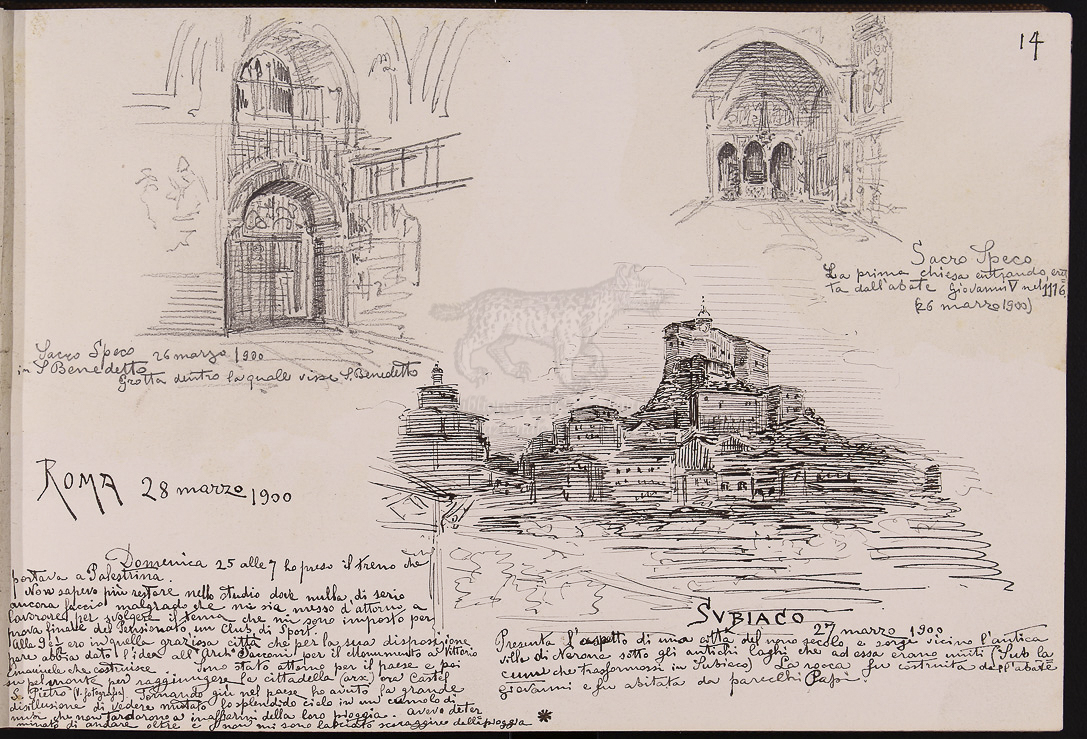 14
Sacro Speco
La prima chiesa entrando eret
ta dall'abate Giovanni V nel 1116
(26 marzo 1900)
Sacro Speco 26 marzo 1900
in S Benedetto
Grotta dentro la quale visse S. Benedetto
ROMA 28 marzo 1900
Domenica 25 alle 7 ho preso il treno che
portava a Palestrina.
Non sapevo più restare nello studio dove nulla di serio
ancora faccio malgrado che mi sia messo d'attorno a
lavorare per svolgere il tema che mi sono imposto per
prova finale del Pensionato un Club di Sport.
Alle 9 ero in quella graziosa città che per la sua disposizione
pare abbia dato l'idea all'Arch. Sacconi per il Monumento a Vittorio
Emanuele che costruisce. Sono stato attorno per il paese e poi
su pel monte per raggiungere la cittadella (arx) ora Castel
S. Pietro (V. fotografia) Tornando giù nel paese ho avuto la grande
disillusione di vedere mutato lo splendido cielo in un cumolo di
nuvi che non tardarono a inaffiarmi della loro pioggia. Avevo deter
minato di andare oltre e non mi sono lasciato scoraggire dalla pioggia
*
SUBIACO
27 marzo 1900
Presenta l'aspetto di una città del nono secolo e sorge vicino l'antica
villa di Nerone sotto gli antichi laghi che ad essa erano uniti (Sub la
cum che trasformossi in Subiaco) La rocca fu costruita dall'abate
Giovanni e fu abitata da parecchi Papi.